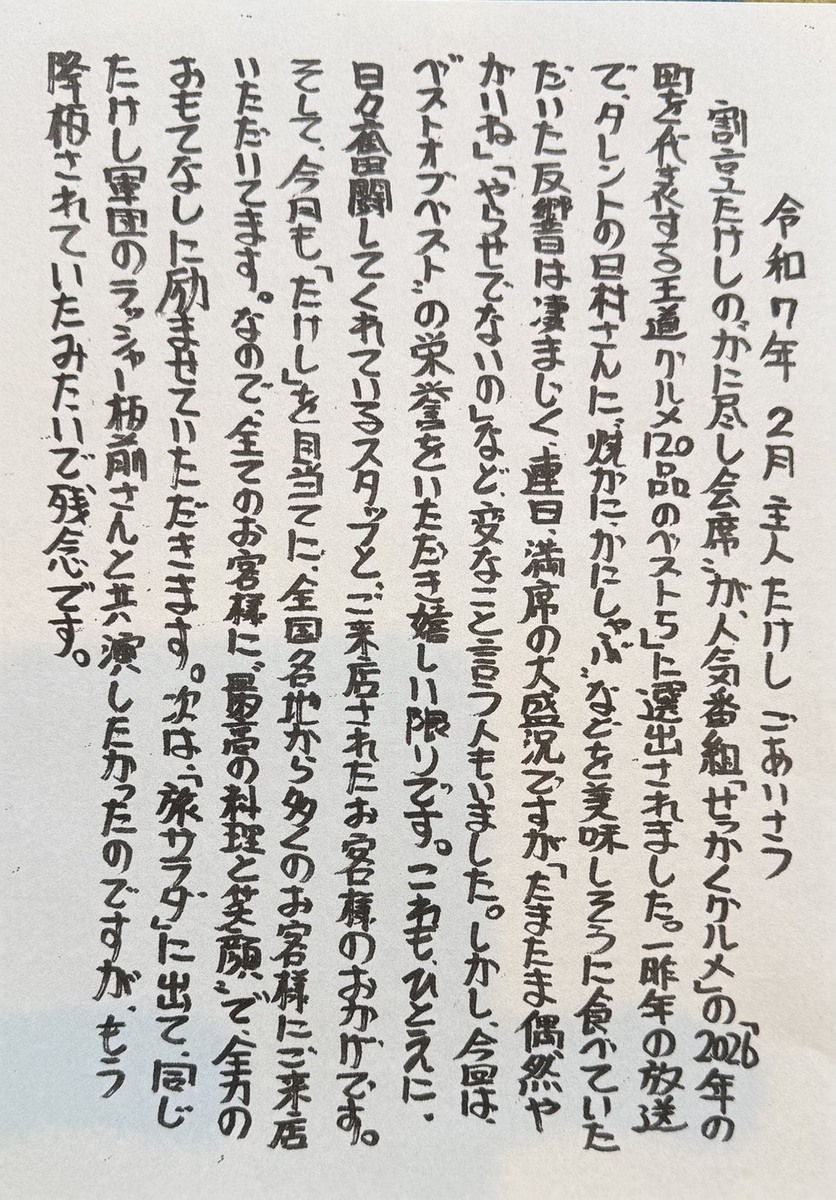 令和7年 2月 主人 たけし ごあいさつ
割烹たけしの〝かに尽し会席〟が、人気番組「せっかくグルメ」の「2026年の
町を代表する王道グルメ120品のベスト5」に選出されました。一昨年の放送
で、タレントの日村さんに、〝焼かに、かにしゃぶ〟などを美味しそうに食べていた
だいた反響は凄まじく、連日、満席の大盛況ですが、「たまたま偶然や
がいね」「やらせでないの」など、変なこと言う人もいました。しかし、今回は、
〝ベストオブベスト〟の栄誉をいただき嬉しい限りです。これも、ひとえに、
日々奮闘してくれているスタッフと、ご来店されたお客様のおかげです。
そして、今月も「たけし」を目当てに、全国各地から多くのお客様にご来店
いただいてます。なので、全てのお客様に、〝最高の料理と笑顔〟で、全力の
おもてなしに励ませていただきます。次は、「旅サラダ」に出て、同じ
たけし軍団のラッシャー板前さんと共演したかったのですが、もう
降板されていたみたいで残念です。